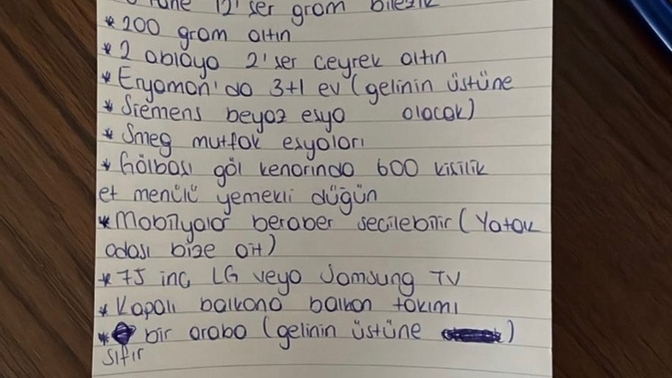 tane 12'ser gram bilezik
* 200 gram altın
* 2 ablaya 2'ser ceyrek altın
* Eryaman'da 3+1 ev (gelinin üstüne
* Siemens beyaz esya olacak)
* Smeg mutfak esyaları
* Gölbası göl kenarında 600 kisilik
et menülü yemekli düğün
* Mobilyalar beraber secilebilir (Yatak
odası bize ait)
* 75 inc LG veya Samsung TV
* Kapalı balkona balkon takımı
* bir araba (gelinin üstüne )
sıfır